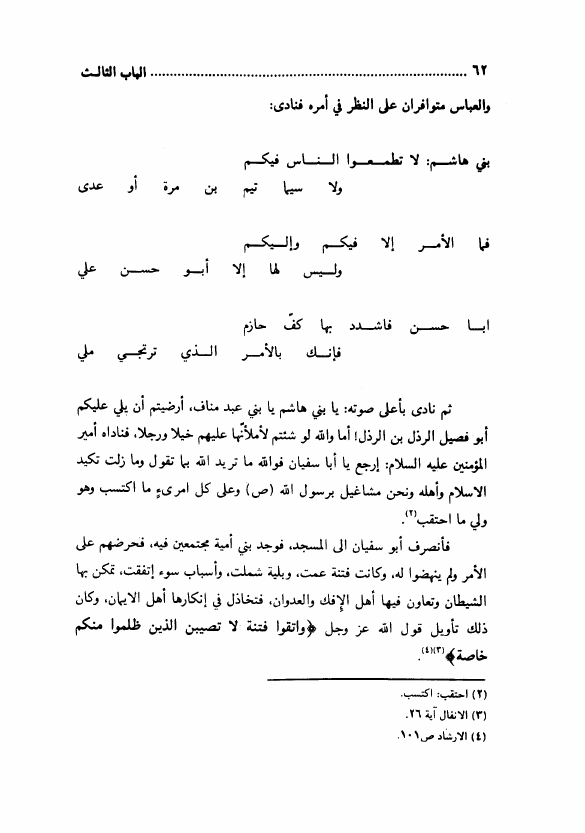 ٦٢ ........................................ الباب الثالث
والعباس متوافران على النظر في أمره فنادى:
بني هاشـم: لا تطمـعـوا النـاس فيكـم
ولا سيما تيم بن مرة أو عدى
فما الأمـر إلا فيكـم وإلـيكـم
ولـيس لها إلا أبـو حسـن علي
ابـا حسـن فاشـدد بها كفّ حازم
فإنـك بالأمـر الـذي ترتجـي ملي
ثم نادى بأعلى صوته: يا بني هاشم يا بني عبد مناف، أرضيتم أن يلي عليكم
أبو فصيل الرذل بن الرذل! أما والله لو شئتم لأملأنّها عليهم خيلا ورجلا، فناداه أمير
المؤمنين عليه السلام: إرجع يا أبا سفيان فوالله ما تريد الله بما تقول وما زلت تكيد
الاسلام وأهله ونحن مشاغيل برسول الله (ص) وعلى كل امرىءٍ ما اكتسب وهو
ولي ما احتقب(٢).
فأنصرف أبو سفيان الى المسجد، فوجد بني أمية مجتمعين فيه، فحرضهم على
الأمر ولم ينهضوا له، وكانت فتنة عمت، وبلية شملت، وأسباب سوء إتفقت، تمكن بها
الشيطان وتعاون فيها أهل الإفك والعدوان، فتخاذل في إنكارها أهل الايمان، وكان
ذلك تأويل قول الله عز وجل ﴿واتقوا فتنة لا تصيبن الذين ظلموا منكم
خاصة﴾(٣)(٤).
(٢) احتقب: اكتسب.
(٣) الانفال آية ٢٦.
(٤) الارشاد ص١٠١.